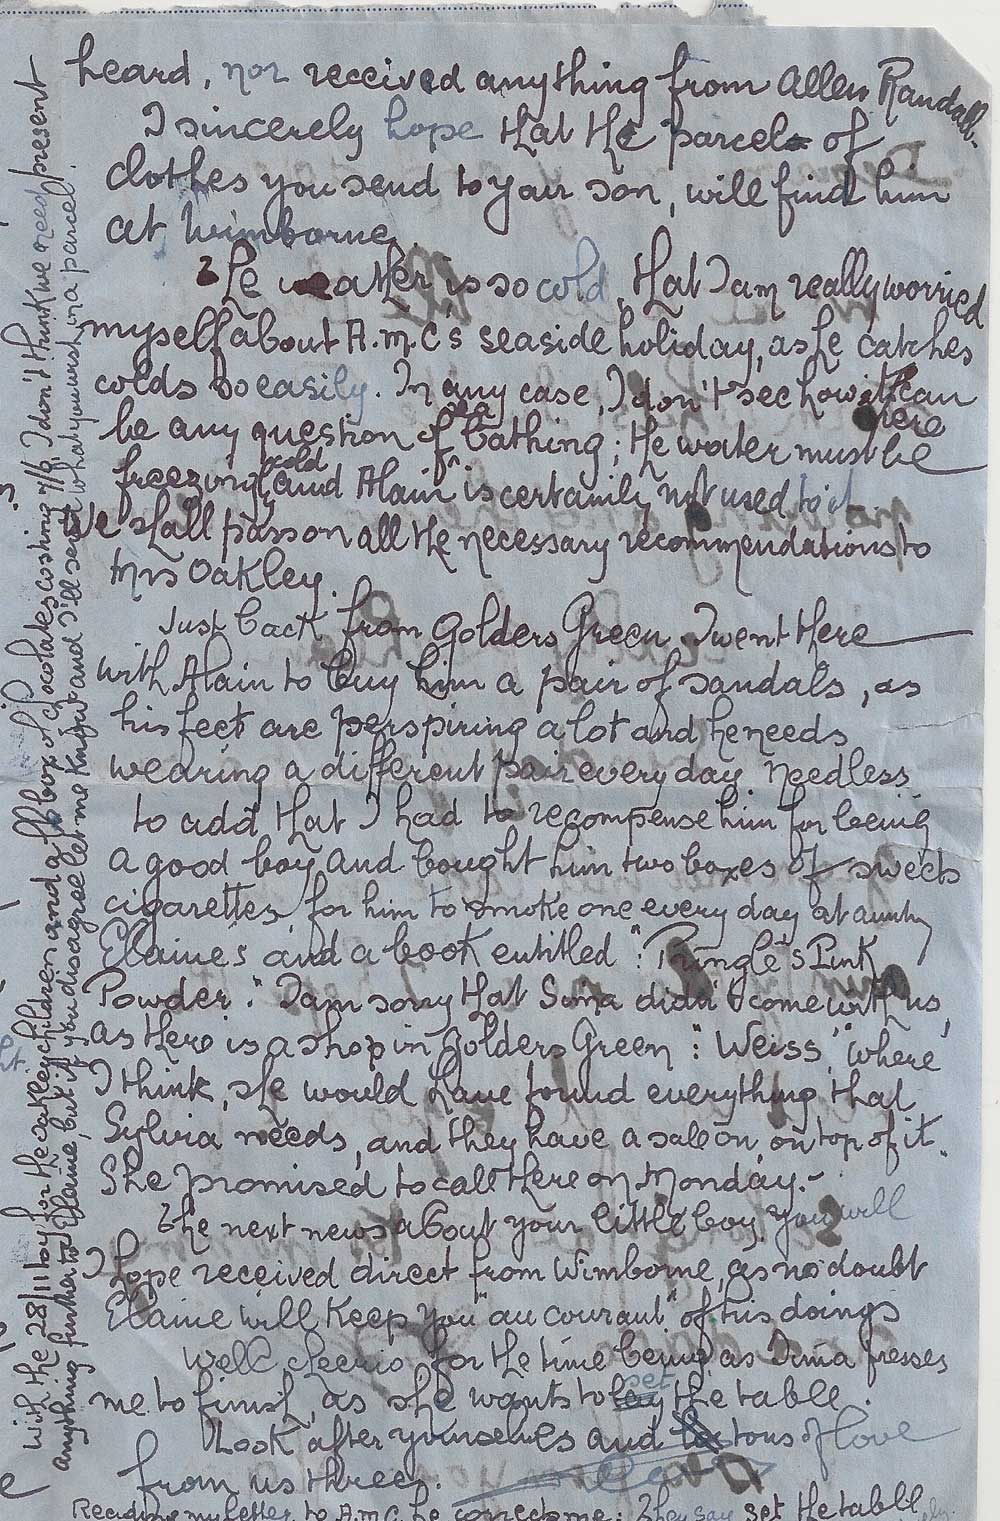 heard, nor received anything from Allen Randall.
I sincerely hope that the parcel of
clothes you send to your son, will find him
at Wimborne.
The weather is so cold, that I am really worried
myself about A.M.C's seaside holiday, as he catches
colds so easily. In any case, I don't see how there can
be any question of sea bathing; the water must be
freezingly cold and Alain is certainly not used to it.
We shall pass on all the necessary recommendations to
Mrs Oakley.
Just back from Golders Green. I went there
with Alain to buy him a pair of sandals, as
his feet are perspiring a lot and he needs
wearing a different pair every day. Needless
to add that I had to recompense him for being
a good boy and bought him two boxes of sweets
cigarettes, for him to smoke one every day at aunty
Elaine's and a book entitled: "Pringle's Pink
Powder." I am sorry that Sima didn't come with us,
as there is a shop in Golders Green: "Weiss," where
I think, she would have found everything, that
Sylvia needs, and they have a sale on, on top of it.
She promised to call there on Monday.-
The next news about your little boy, you will
I hope received direct from Wimborne, as no doubt
Elaine will keep you "au courant" of his doings
Well cheerio for the time being, as Sima presses
me to finish, as she wants to set the table.
Look after yourselves and tons of love
from us threes.
Reading my letter to A.M.C. he corrects me: They say set the table
With the 28/11 toy for the Oakley children and a box of chocolates costing 7/6, I don't think we need present
anything further to Elaine, but if you disagree let me know and I'll send what you wish in a parcel.